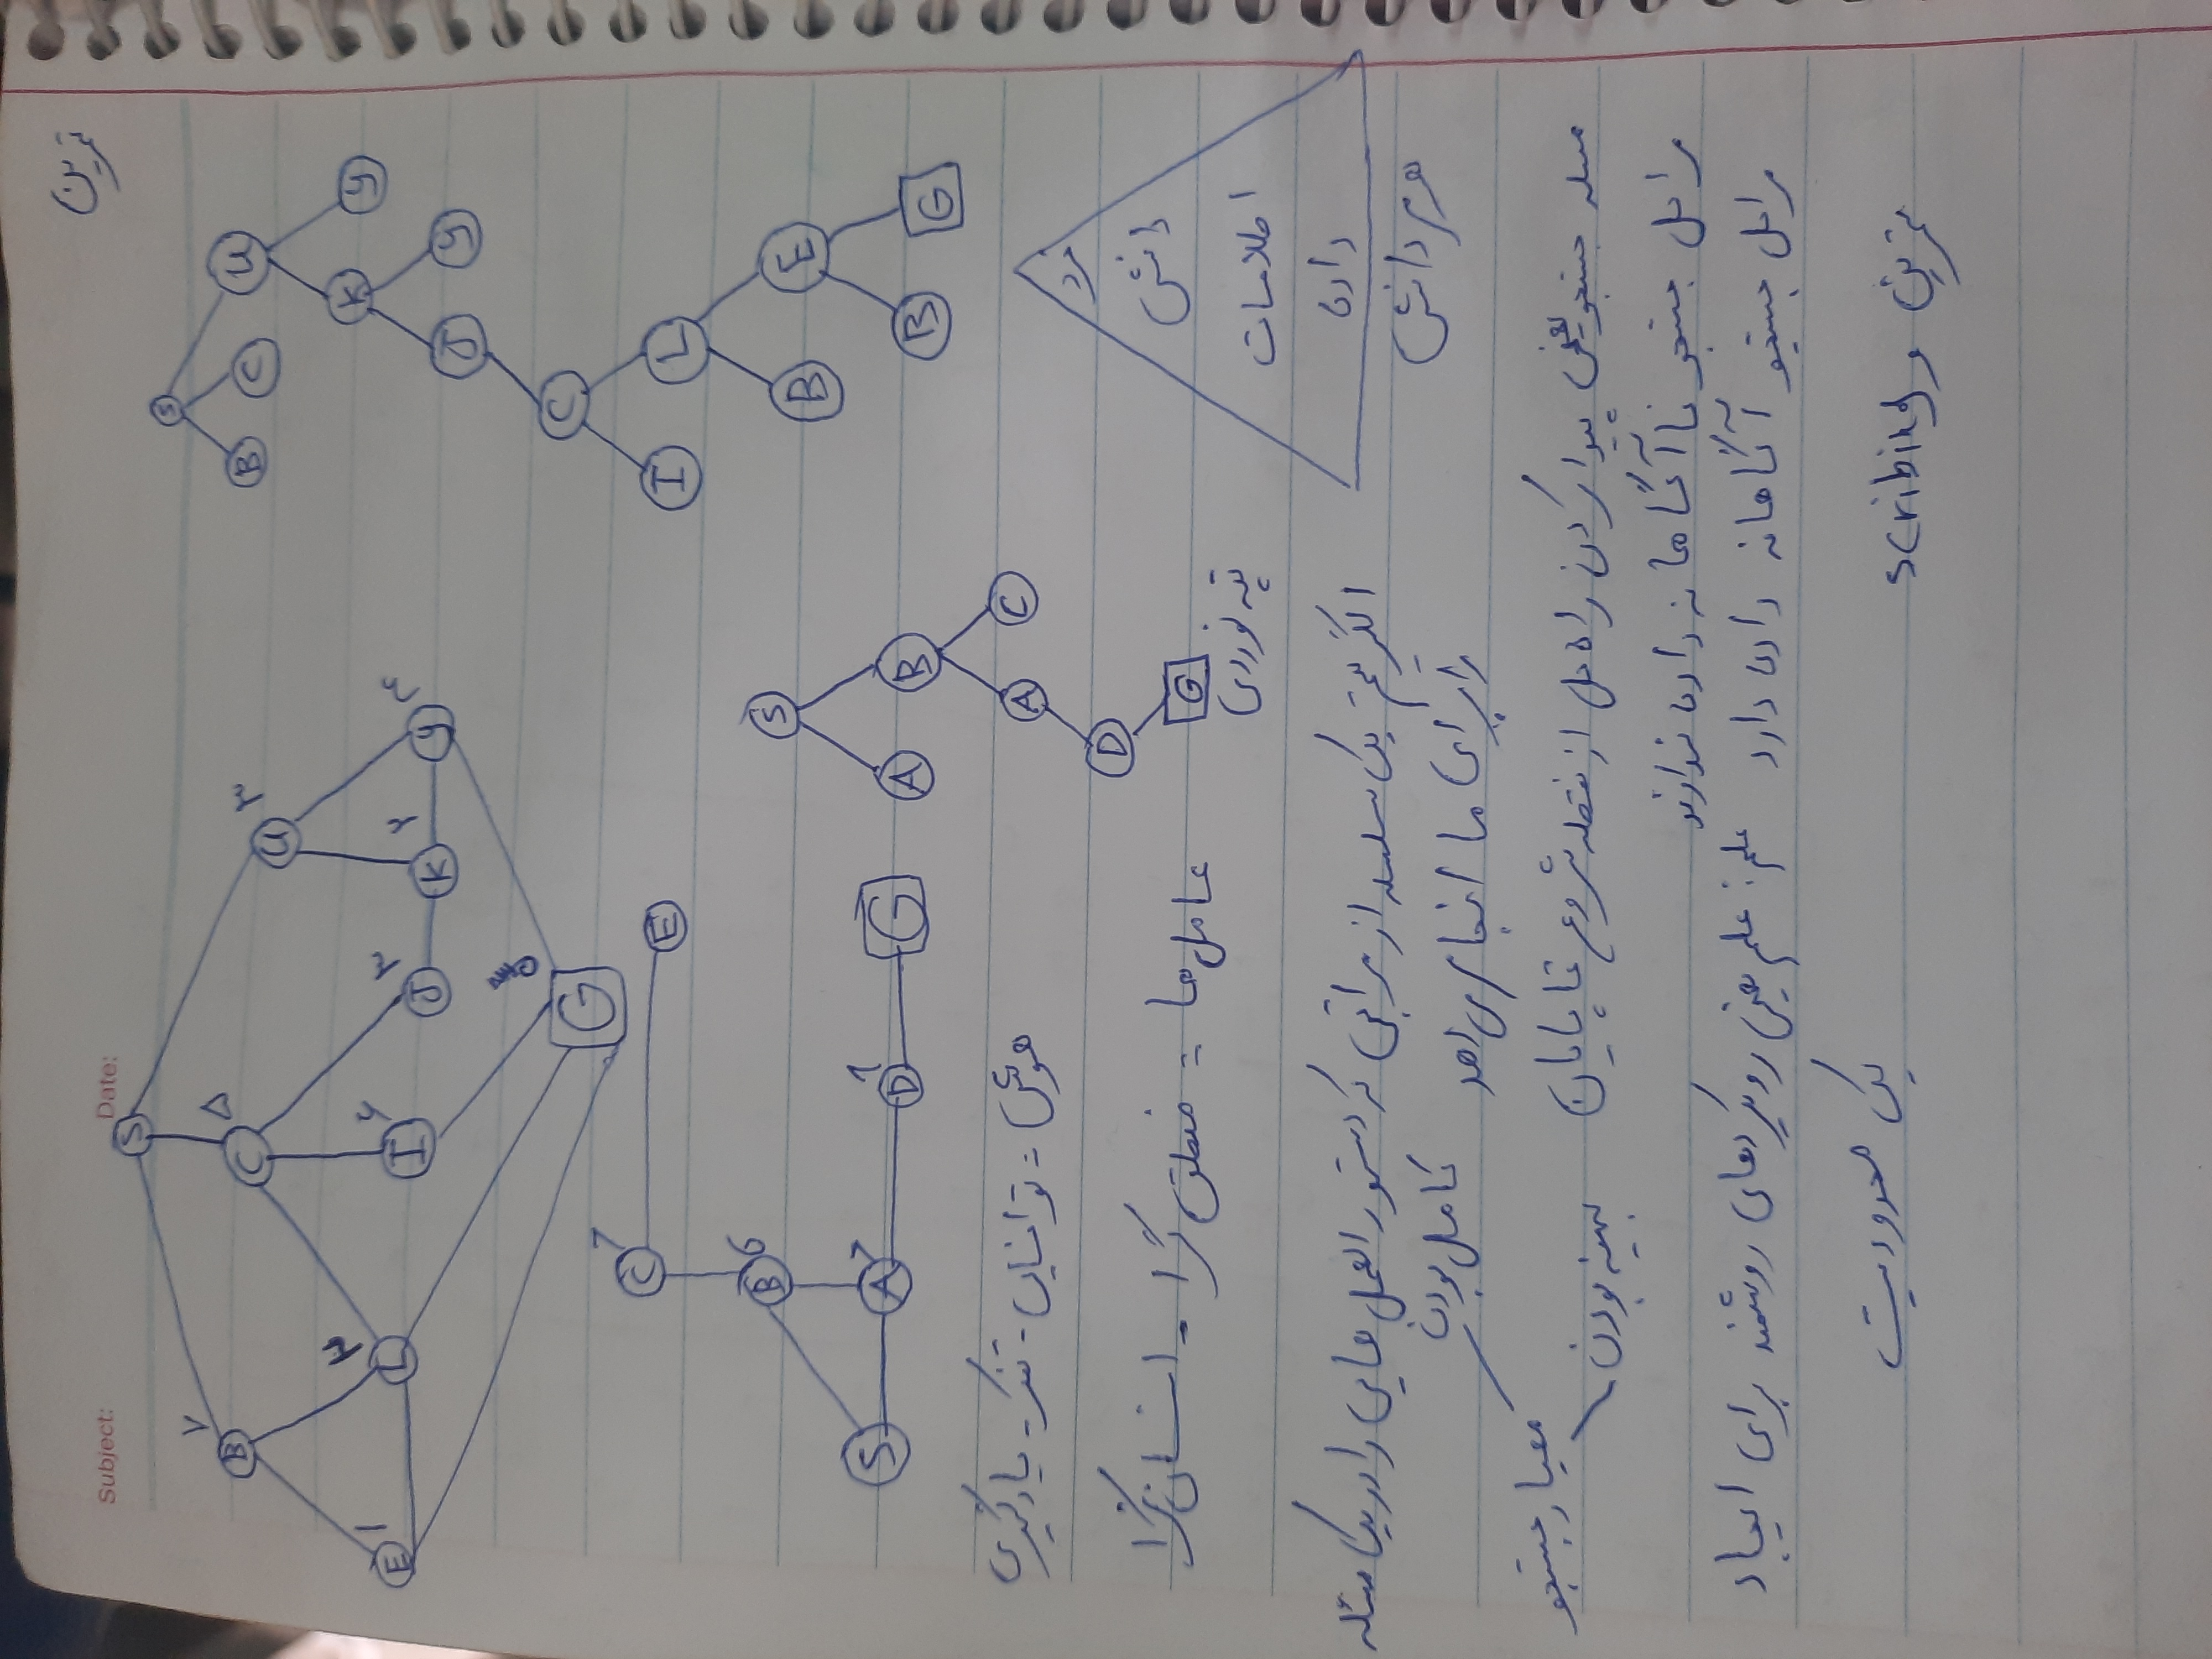 تمرین
Subject: Date:
S
B ۷ C ۵ U ۳
E ۱ L ۳ I ۶ J ۳ K ۲ y ۴
G
S
B C U
K y
J y
C
I L
B E
B G
C 7 E
B 6
S A D 1 G
S
A B
A C
D
G
تپه نوردی
هوش = توانایی - تفکر - یادگیری
عامل ها = منطق گرا - انسان گرا
خرد
دانش
اطلاعات
داده
هرم دانش
الگریتم یک سلسله از مراتبی که دستور العمل هایی را در یک مسئله
را برای ما انجام می دهد
معیار جستجو
کامل بودن
بهینه بودن
مسله جستجو یعنی پیدا کردن راه حل از نقطه شروع تا پایان
مراحل جستجو ناآگاهانه داده ندارند
مراحل جستجو آگاهانه داده دارد
علم: علم یعنی رویکردهای روشمند برای ایجاد
یک محدودیت
تمرین و scribing